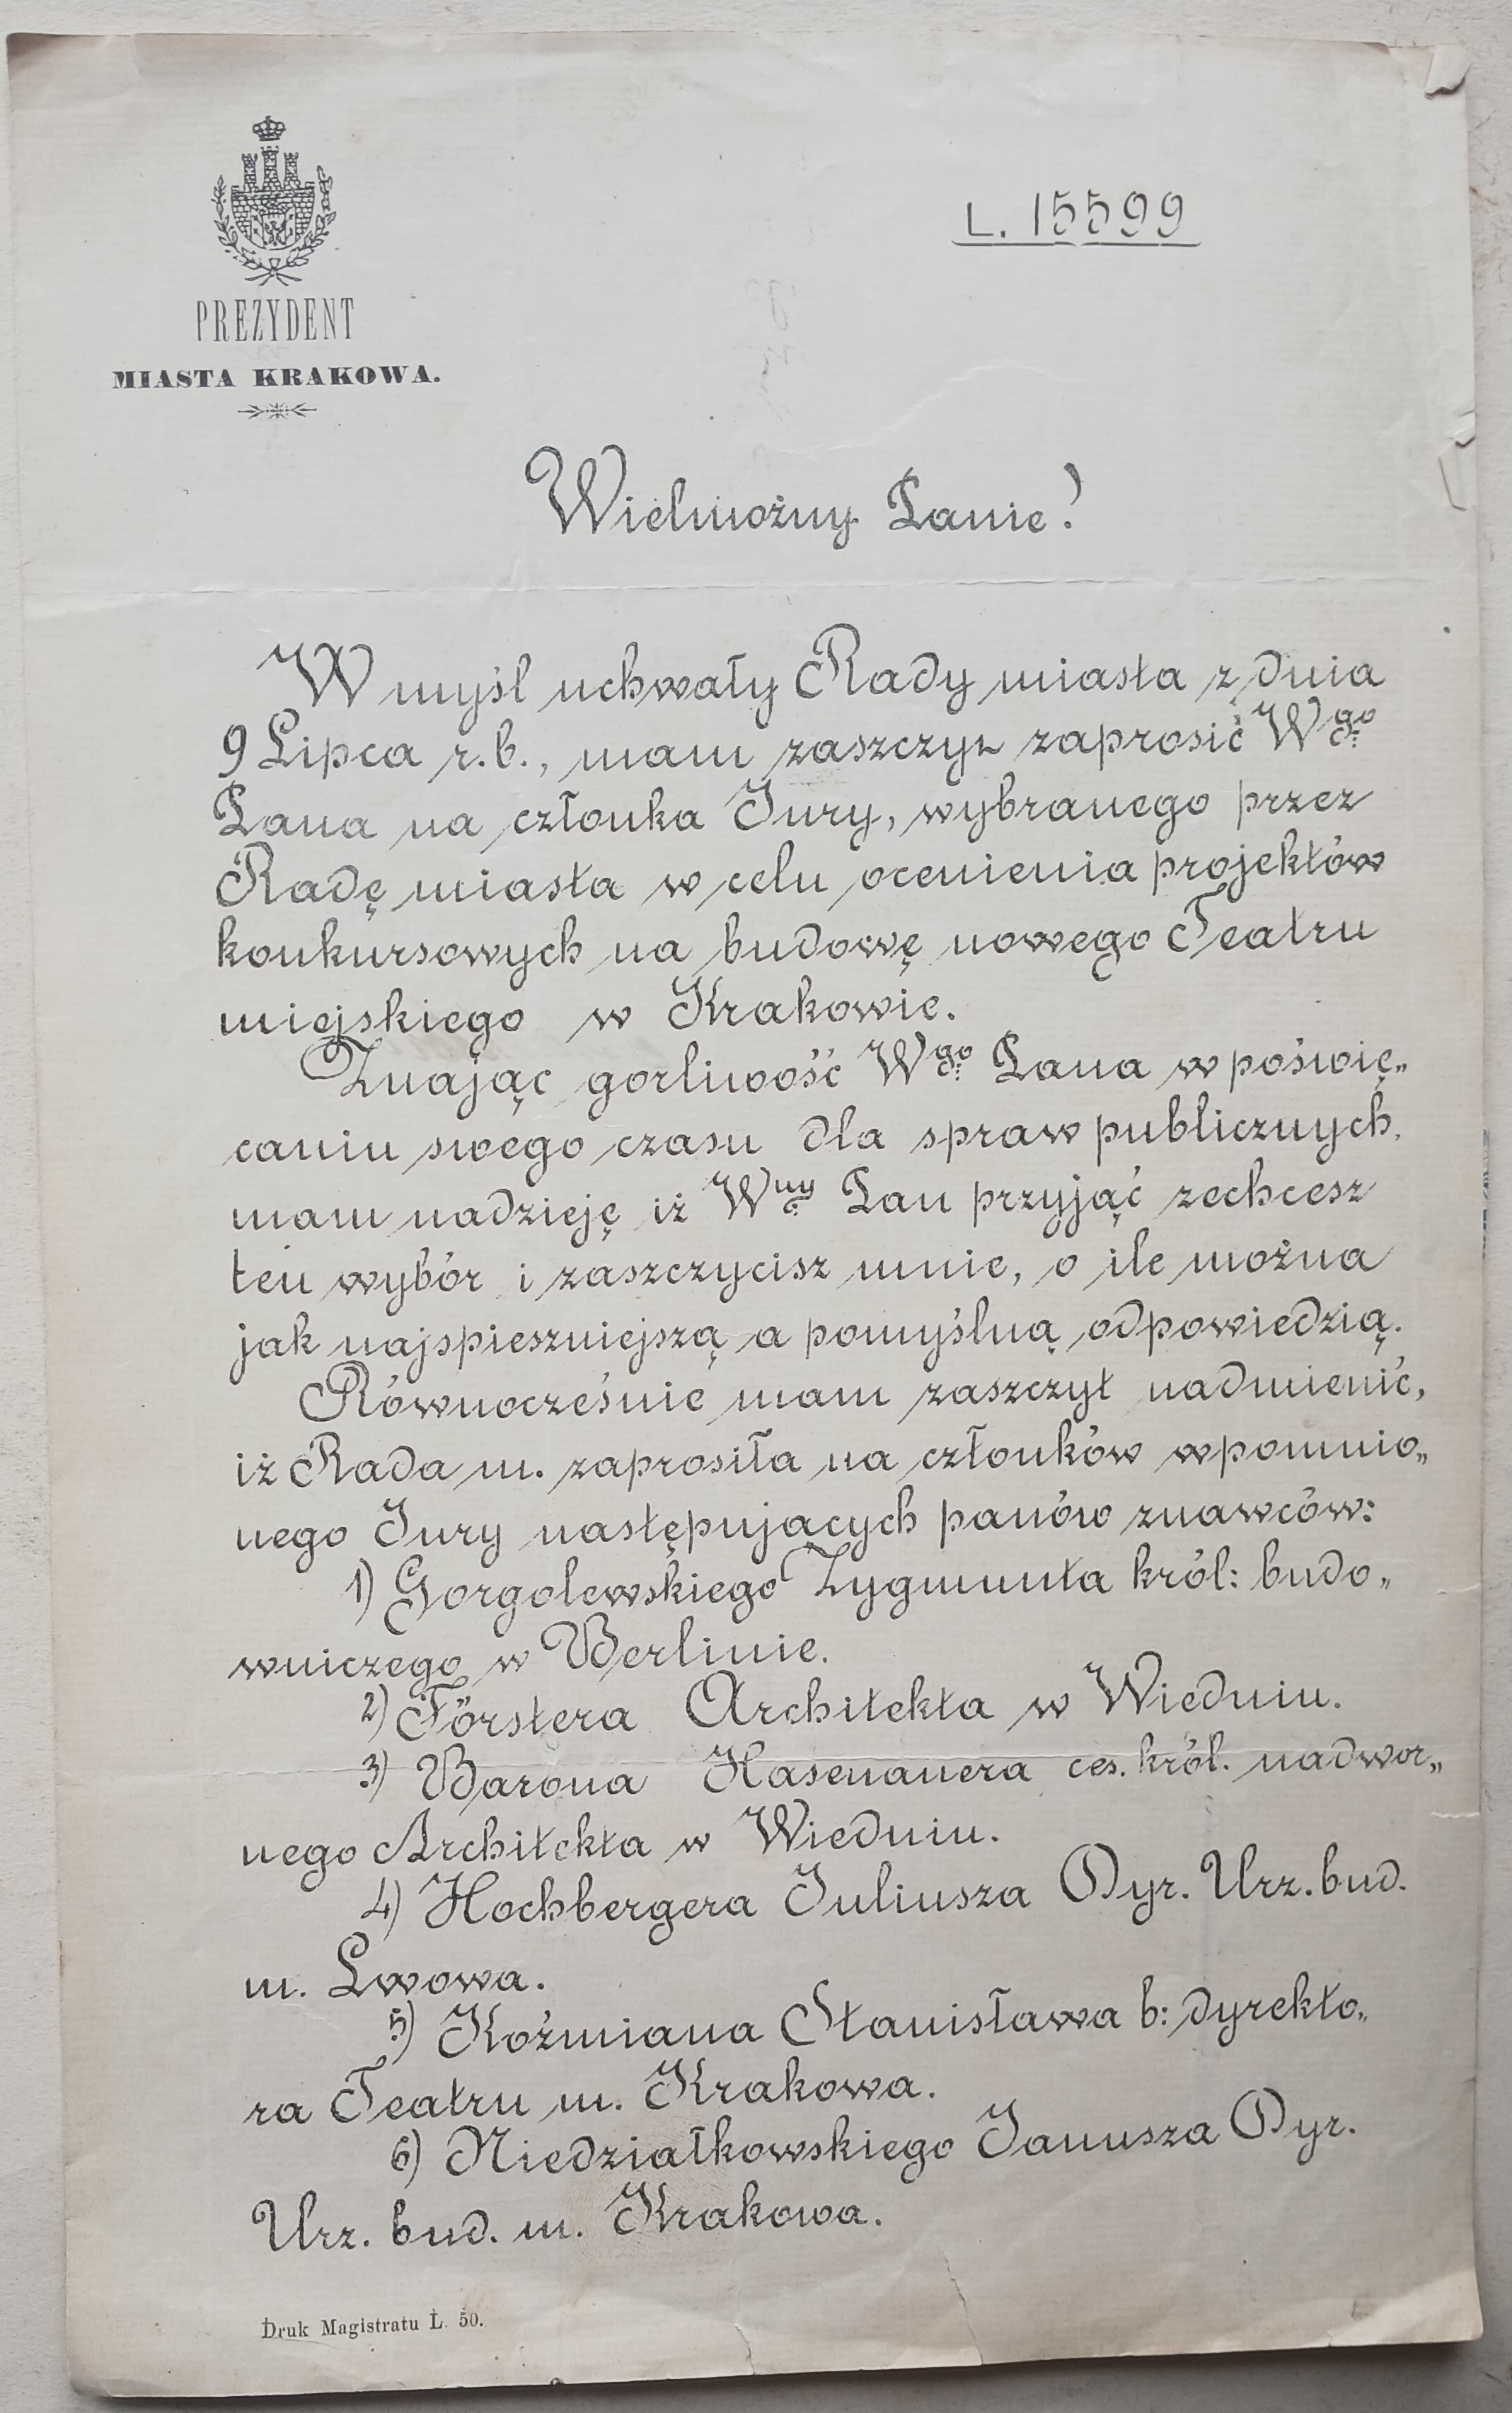 L. 15599
PREZYDENT
MIASTA KRAKOWA.
Wielmożny Panie!
W myśl uchwały Rady miasta z dnia
9 Lipca r.b., mam zaszczyt zaprosić Wgo
Pana na członka Jury, wybranego przez
Radę miasta w celu ocenienia projektów
konkursowych na budowę nowego Teatru
miejskiego w Krakowie.
Znając gorliwość Wgo Pana w poświę„
caniu swego czasu dla spraw publicznych,
mam nadzieję iż Wny Pan przyjąć zechcesz
ten wybór i zaszczycisz mnie, o ile można
jak najspieszniejszą a pomyślną odpowiedzią.
Równocześnie mam zaszczyt nadmienić,
iż Rada m. zaprosiła na członków wpomnio„
nego Jury następujących panów znawców:
1) Gorgolewskiego Zygmunta król: budo„
wniczego w Berlinie.
2) Förstera Architekta w Wiedniu.
3) Barona Hasenauera ces. król. nadwor„
nego Architekta w Wiedniu.
4) Hochbergera Juliusza Dyr. Urz. bud.
m. Lwowa.
5) Koźmiana Stanisława b: dyrekto„
ra Teatru m. Krakowa.
6) Niedziałkowskiego Janusza Dyr.
Urz. bud. m. Krakowa.
Druk Magistratu L. 50.